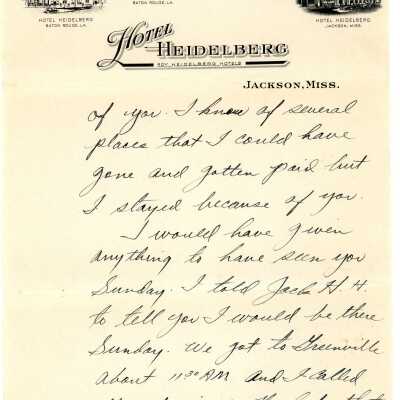 HOTEL HEIDELBERG
BATON ROUGE, LA.
BATON ROUGE, LA.
HOTEL HEIDELBERG
JACKSON, MISS.
HOTEL HEIDELBERG
ROY HEIDELBERG HOTELS
JACKSON, MISS.
of you. I know of several
places that I could have
gone and gotten paid but
I stayed because of you.
I would have given
anything to have seen you
Sunday. I told Jack H. H.
to tell you I would be there
Sunday. We got to Greenville
about 11:30 AM and I called